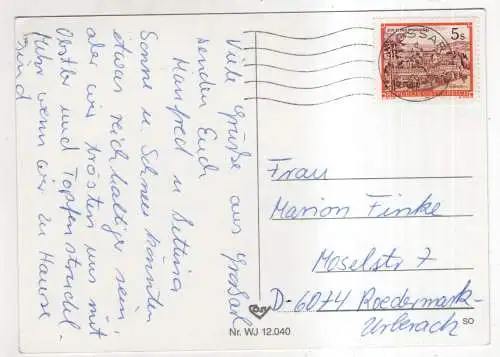 Viele Grüße aus Großarl
senden Euch
Manfred u. Bettina
Sonne u. Schnee könnten
etwas reichhaltiger sein,
aber wir trösten uns mit
Obstler und Topfenstrudel.
Mehr wenn wir zu Hause
sind
5s
GROSSARL
Frau
Marion Finke
Moselstr 7
D-6074 Roedermark-
Urberach
Nr. WJ 12.040
SO